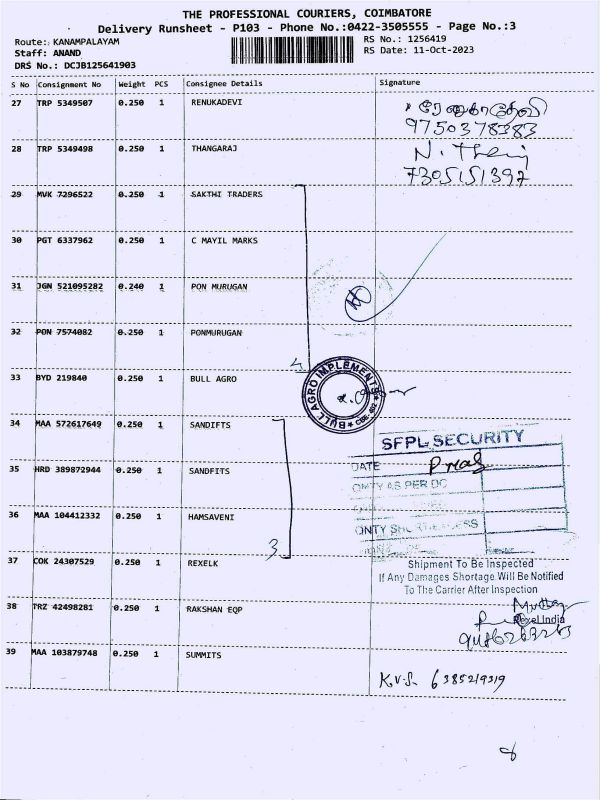 THE PROFESSIONAL COURIERS, COIMBATORE
Delivery Runsheet - P103 - Phone No.:0422-3505555 - Page No.:3
Route: KANAMPALAYAM RS No.: 1256419
Staff: ANAND RS Date: 11-Oct-2023
DRS No.: DCJB125641903
S No Consignment No Weight PCS Consignee Details Signature
27 TRP 5349507 0.250 1 RENUKADEVI ரேணுகாதேவி
9750378383
28 TRP 5349498 0.250 1 THANGARAJ N.
7305151397
29 MVK 7296522 0.250 1 SAKTHI TRADERS
30 PGT 6337962 0.250 1 C MAYIL MARKS
31 JGN 521095282 0.240 1 PON MURUGAN
32 PON 7574082 0.250 1 PONMURUGAN
4
33 BYD 219840 0.250 1 BULL AGRO
BULL AGRO IMPLEMENTS
34 MAA 572617649 0.250 1 SANDIFTS
SFPL SECURITY
DATE
35 HRD 389872944 0.250 1 SANDFITS
QNTY AS PER DC
36 MAA 104412332 0.250 1 HAMSAVENI
3
37 COK 24307529 0.250 1 REXELK
Shipment To Be Inspected
If Any Damages Shortage Will Be Notified
To The Carrier After Inspection
38 TRZ 42498281 0.250 1 RAKSHAN EQP
Rexel India
39 MAA 103879748 0.250 1 SUMMITS
K.V.S. 6385219319
8